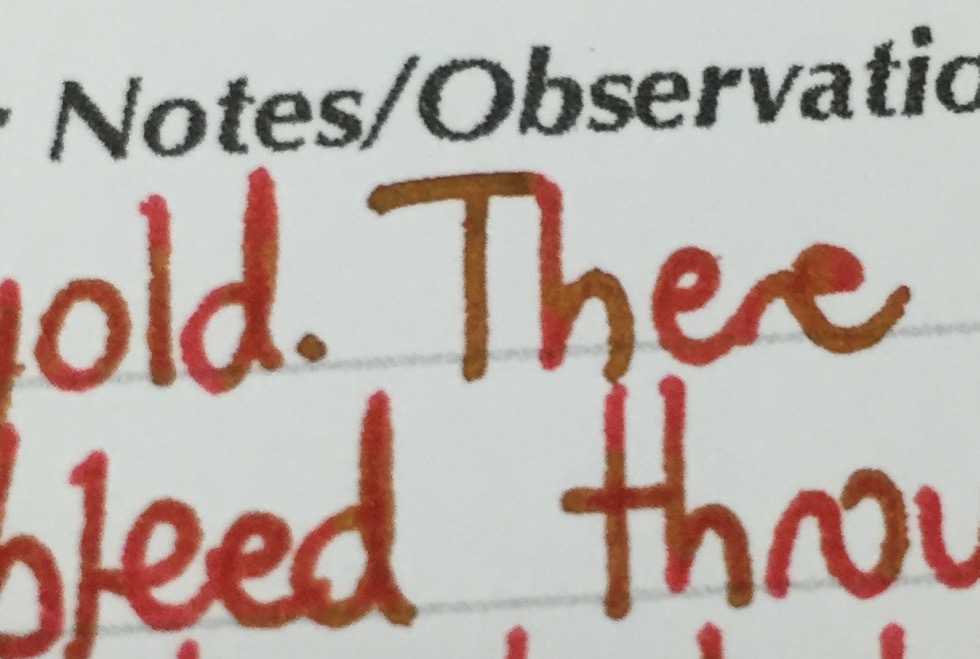 Notes/Observatio
gold. There
bleed throu